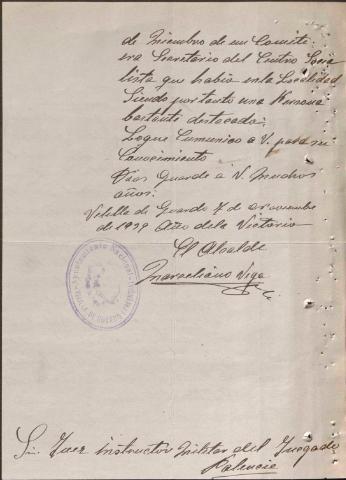 de Miembro de un Comite
era Secretario del Centro Socia
lista que habia en la Localidad
Siendo por tanto una Persona
bastante destacada.
Loque Comunico a V. para su
Conocimiento
Dios Guarde a V. Muchos
años.
Velilla de Guardo 7 de Noviembre
de 1939 Año de la Victoria
El Alcalde
Marceliano Vega
Sr. Juez instructor Militar del Juzgado
Palencia